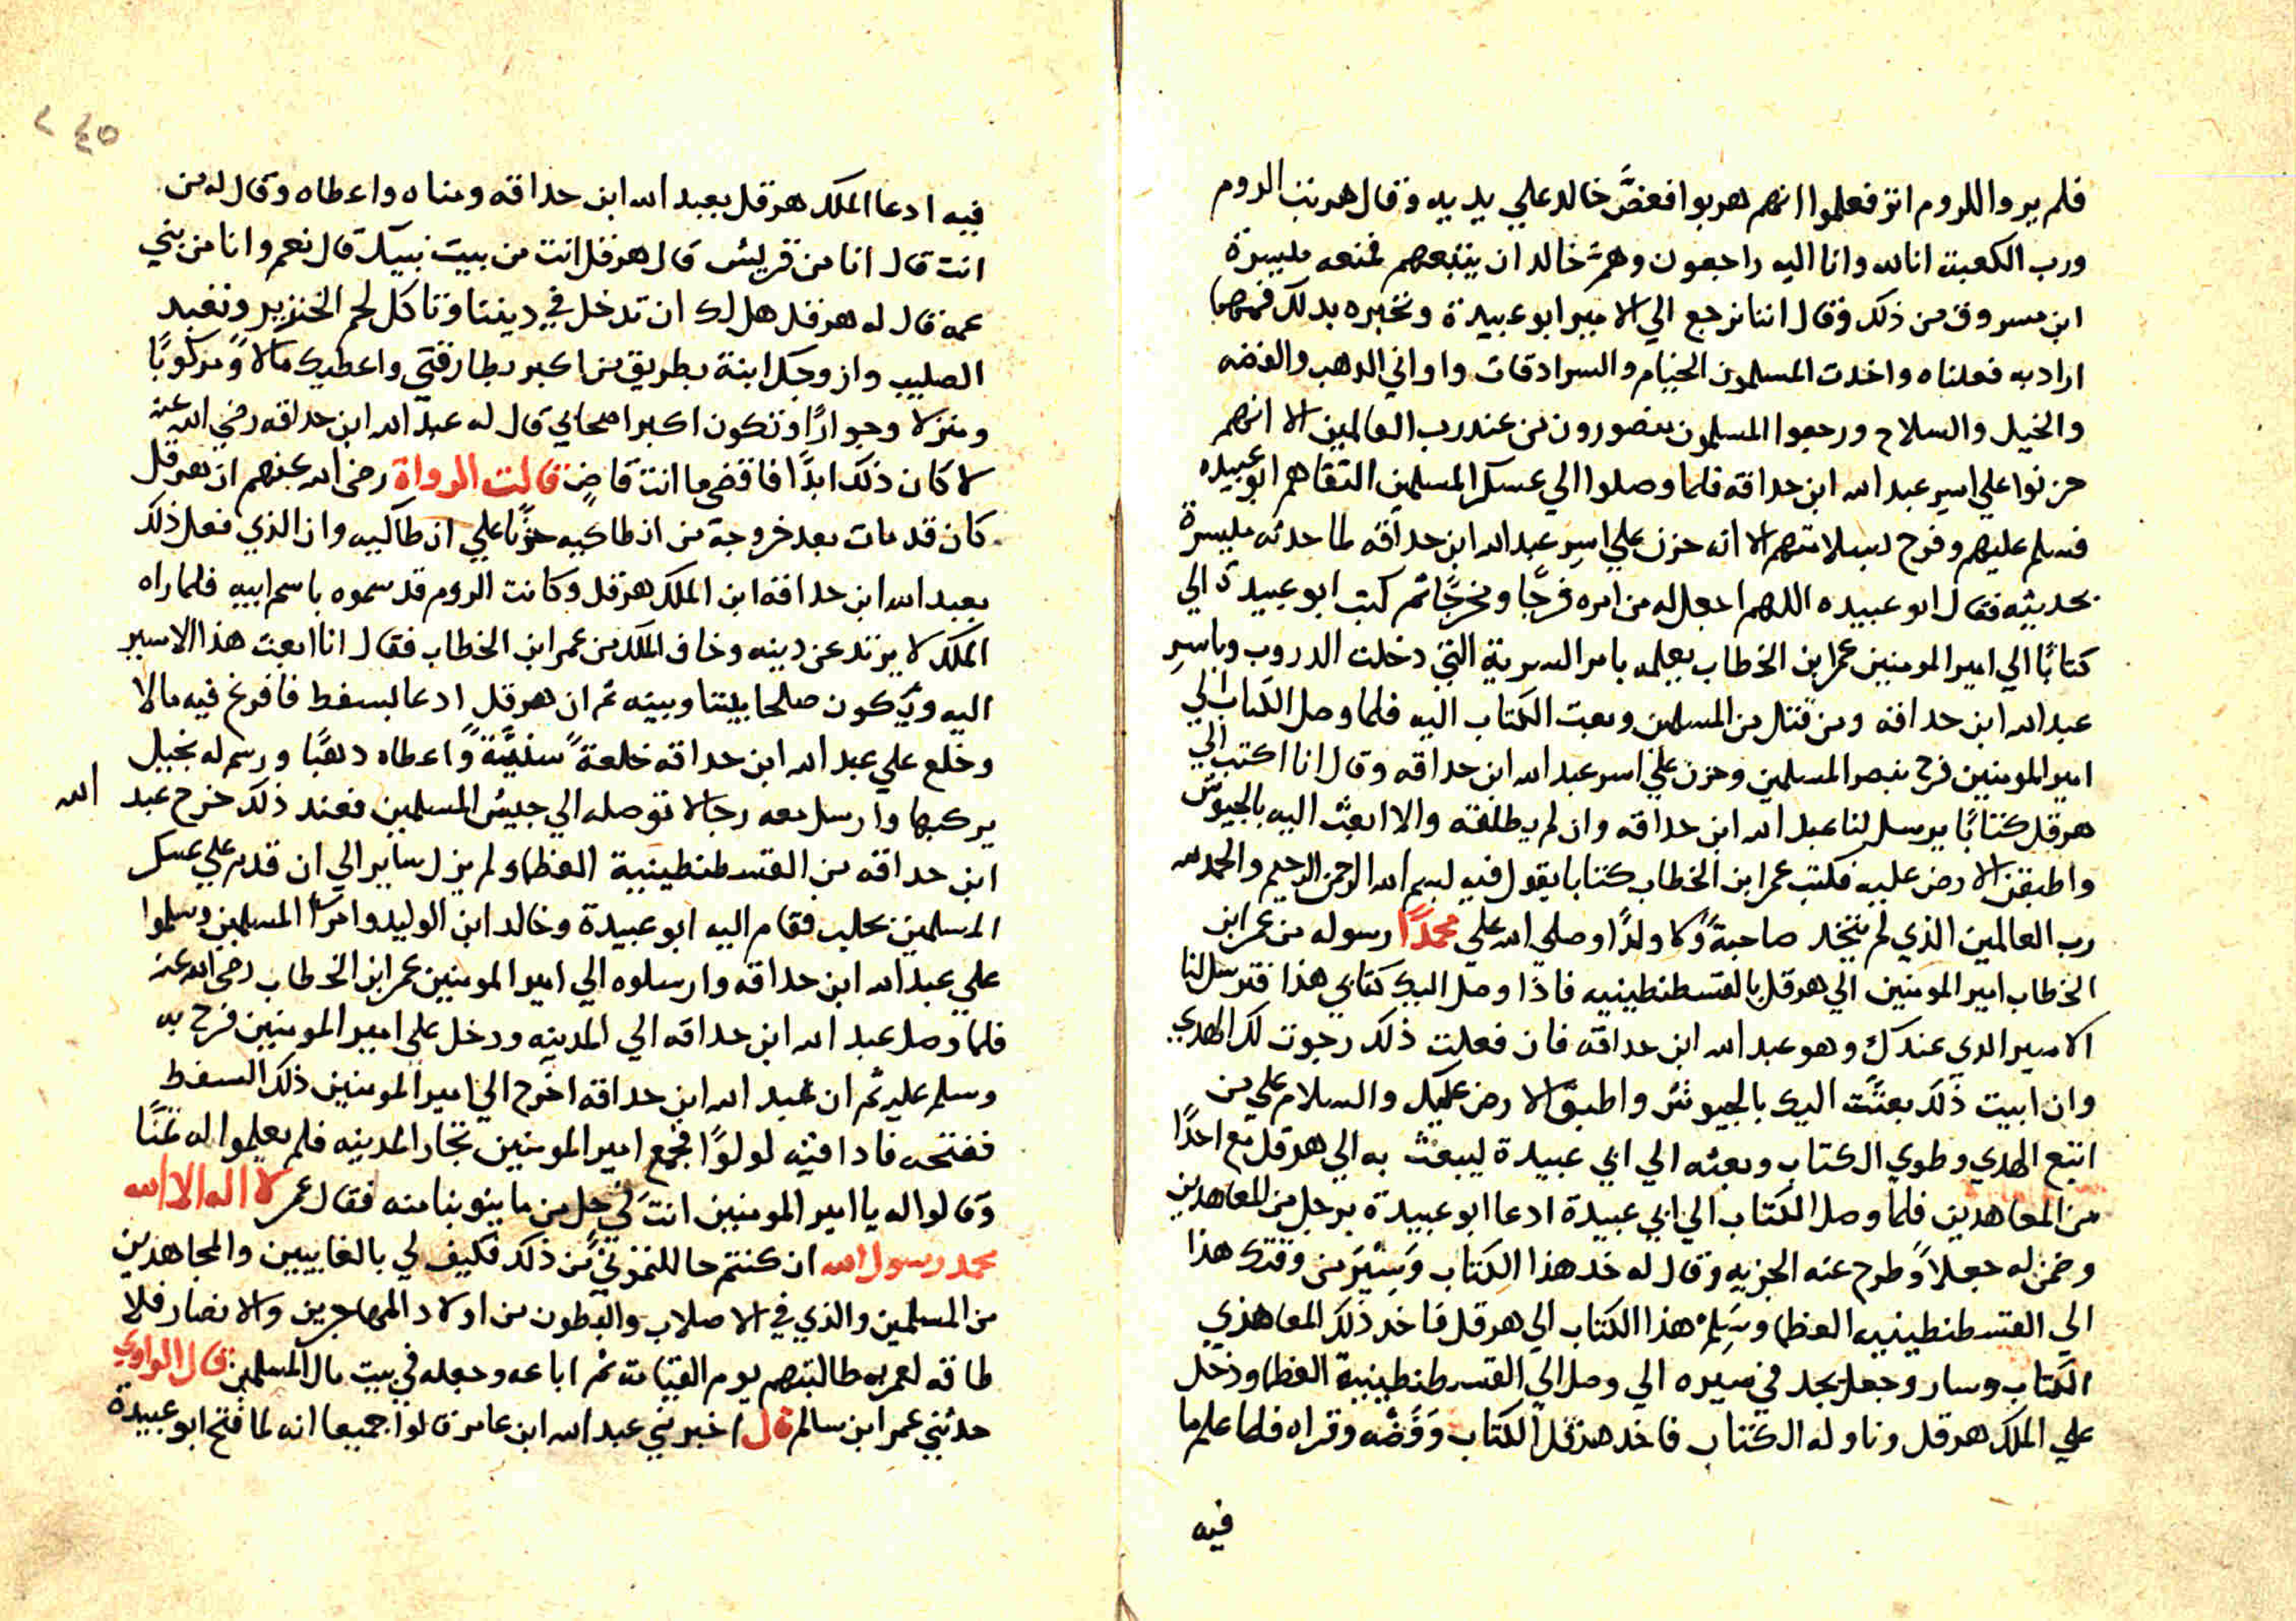 فلم يروا للروم اثر فعلموا انهم هربوا فعضَّ خالد علي يديه وقال هربت الروم
ورب الكعبة انا لله وانا اليه راجعون وهمّ خالد ان يتبعهم فمنعه مليسرة
ابن مسروق من ذلك وقال اننا نرجع الي الامير ابو عبيدة ونخبره بذلك فمهما
اراد به فعلناه واخدت المسلمون الخيام والسرادقات واواني الدهب والفضه
والخيل والسلاح ورجعوا المسلمون منصورون من عند رب العالمين الا انهم
حزنوا علي اسير عبد الله ابن حداقه فلما وصلوا الي عسكر المسلمين التقاهم ابو عبيده
فسلم عليهم وفرح بسلامتهم الا انه حزن علي اسرِ عبد الله ابن حداقه لما حدثه مليسرة
بحديثه فقال ابو عبيده اللهم اجعل له من امره فرجًا ومخرجًا ثم كتب ابو عبيدة الي
كتابًا الي امير المومنين عمر ابن الخطاب يعلمه بامر السرية التي دخلت الدروب وباسرِ
عبد الله ابن حداقه ومن قتل من المسلمين وبعت الكتاب اليه فلما وصل الكتاب الي
امير المومنين فرح بنصر المسلمين وحزن علي اسر عبد الله ابن حداقه وقال انا اكتب الي
هرقل كتابًا يرسل لنا عبد الله ابن حداقه وان لم يطلقه والا ابعث اليه بالجيوش
واطبقن الارض عليه فكتب عمر ابن الخطاب كتابا يقول فيه بسم الله الرحمن الرحيم والحمد لله
رب العالمين الذي لم يتخد صاحبةً ولا ولدًا وصلي الله علي محمدًا رسوله من عمر ابن
الخطاب امير المومنين الي هرقل بالقسطنطينيه فاذا وصل اليك كتابي هذا فترسل لنا
الاسير الدي عندك وهو عبد الله ابن حداقه فان فعلت ذلك رجوت لك الهدي
وان ابيت ذلك بعثت اليك بالجيوش واطبق الارض عليك والسلام علي من
اتبع الهدي وطوي الكتاب وبعثه الي ابي عبيدة ليبعث به الي هرقل مع احدًا
من المعاهدين فلما وصل الكتاب الي ابي عبيدة ادعا ابو عبيدة برجل من المعاهدين
وضمن له جعلاً وطرح عنه الجزيه وقال له خد هذا الكتاب وسير من وقتك هذا
الي القسطنطينيه العظما وسَلِمْ هذا الكتاب الي هرقل فاخد ذلك المعاهدي
الكتاب وسار وجعل يجد في سيره الي وصل الي القسطنطينية العظما ودخل
علي الملك هرقل وناوله الكتاب فاخد هرقل الكتاب وفضه وقراه فلما علم ما
فيه
٢٤٥
فيه ادعا الملك هرقل بعبد الله ابن حداقه ومناه واعطاه وقال له من
انت قال انا من قريش قال هرقل انت من بيت نبيك قال نعم وانا من بني
عمه قال له هرقل هل لك ان تدخل في ديننا وتاكل لحم الخنزير وتعبد
الصليب وازوجك ابنة بطريق من اكبر بطارقتي واعطيك مالاً ومركوبًا
ومنزلا وجوارًا وتكون اكبر اصحابي قال له عبد الله ابن حداقه رضي الله عنه
لا كان ذلك ابدًا فاقضِ ما انت قاضٍ قالت الرواة رضي الله عنهم ان هرقل
كان قد مات بعد خروجه من انطاكيه حزنًا علي انطاكيه وان الذي فعل ذلك
بعبد الله ابن حداقة ابن الملك هرقل وكانت الروم قد سموه باسم ابيه فلما راه
الملك لا يرتد عن دينه وخاف الملك من عمر ابن الخطاب فقال انا ابعت هذا الاسير
اليه ويكون صلحا بيننا وبينه ثم ان هرقل ادعا بسفط فافرغ فيه مالا
وخلع علي عبد الله ابن حداقه خلعةً سنيَّةً واعطاه دهبًا ورسم له بخيل
يركبها وارسل معه رجالا توصله الي جيش المسلمين فعند ذلك خرج عبد الله
ابن حداقه من القسطنطينية العظماء ولم يزل ساير الي ان قدم علي عسكر
المسلمين بحلب فقام اليه ابو عبيدة وخالد ابن الوليد وامرآ المسلمين وسلموا
علي عبد الله ابن حداقه وارسلوه الي امير المومنين عمر ابن الخطاب رضي الله عنه
فلما وصل عبد الله ابن حداقه الي المدينه ودخل علي امير المومنين فرح به
وسلم عليه ثم ان عبد الله ابن حداقه اخرج الي امير المومنين ذلك السفط
ففتحه فادا فيه لولوًا فجمع امير المومنين تجار المدينه فلم يعلموا له ثمنًا
وقالوا له يا امير المومنين انت في حل من ما ينوبنا منه فقال عمر لا اله الا الله
محمد رسول الله ان كنتم حاللتموني من ذلك فكيف لي بالغايبين والمجاهدين
من المسلمين والذي في الاصلاب والبطون من اولاد المهاجرين والانصار فلا
طاقه لعمر بمطالبتهم يوم القيامه ثم اباعه وجعله في بيت مال المسلمين قال الراوي
حدثني عمر ابن سالم قال اخبرني عبد الله ابن عامر قالوا جميعا انه لما فتح ابو عبيدة